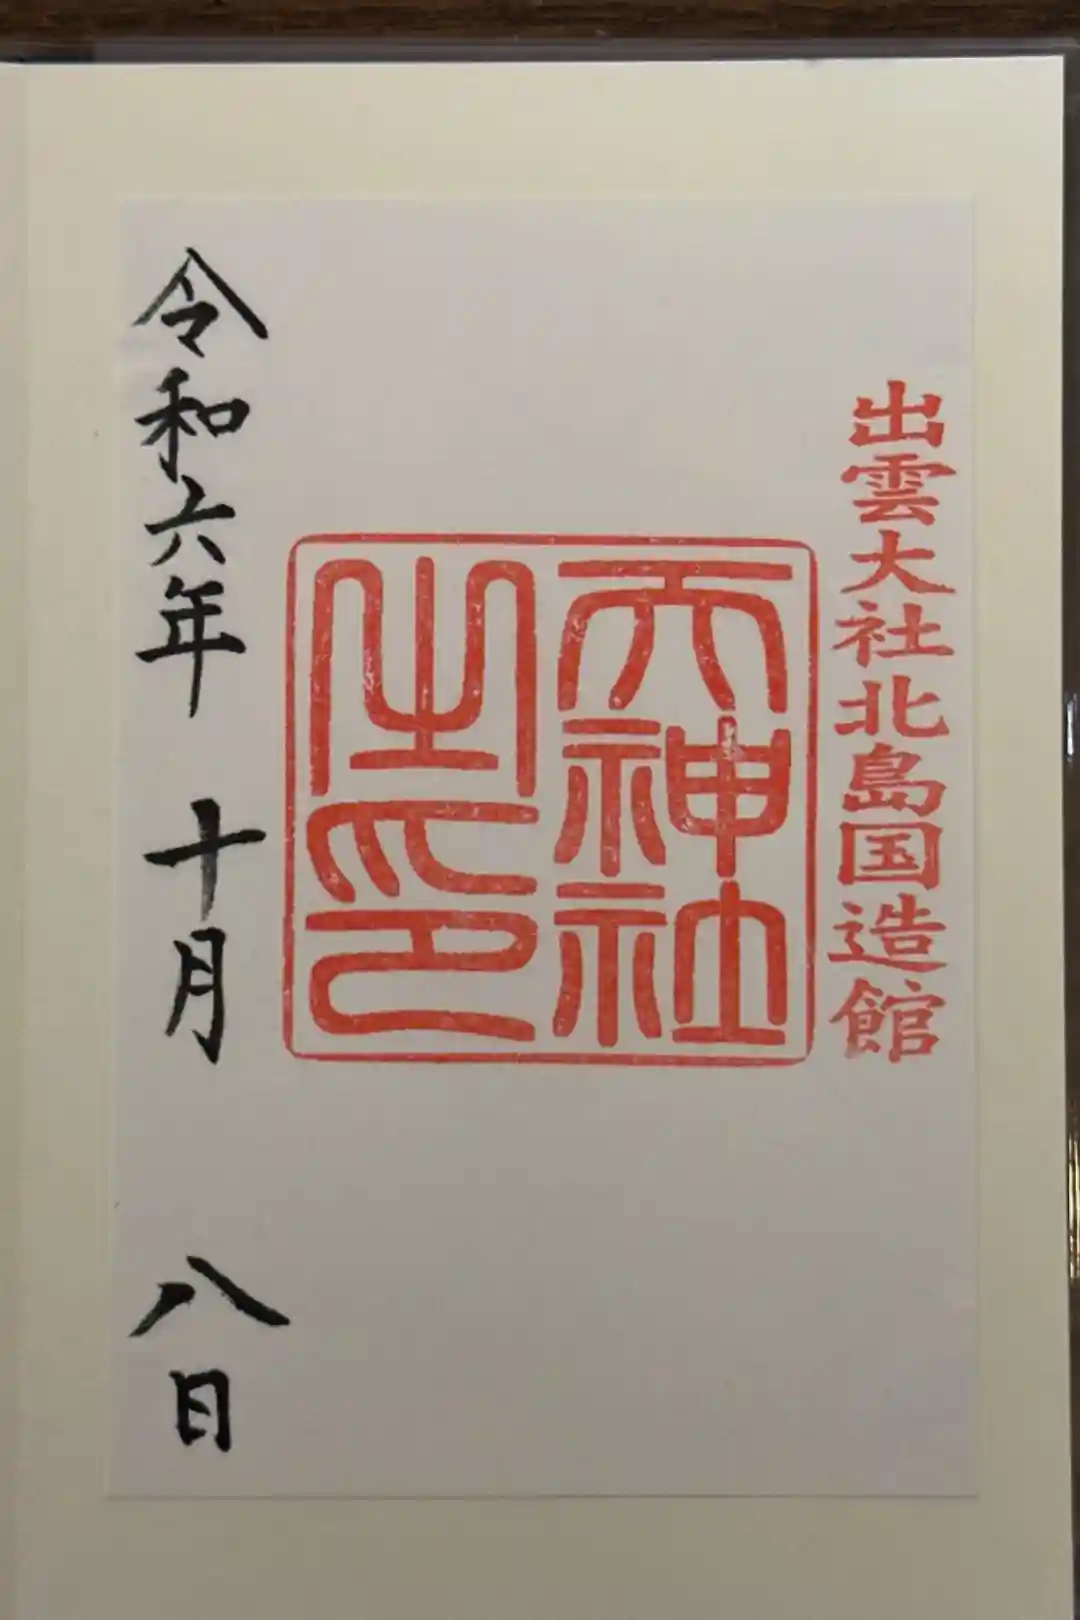 出雲大社北島国造館
天神社
之印
令和六年 十月 八日